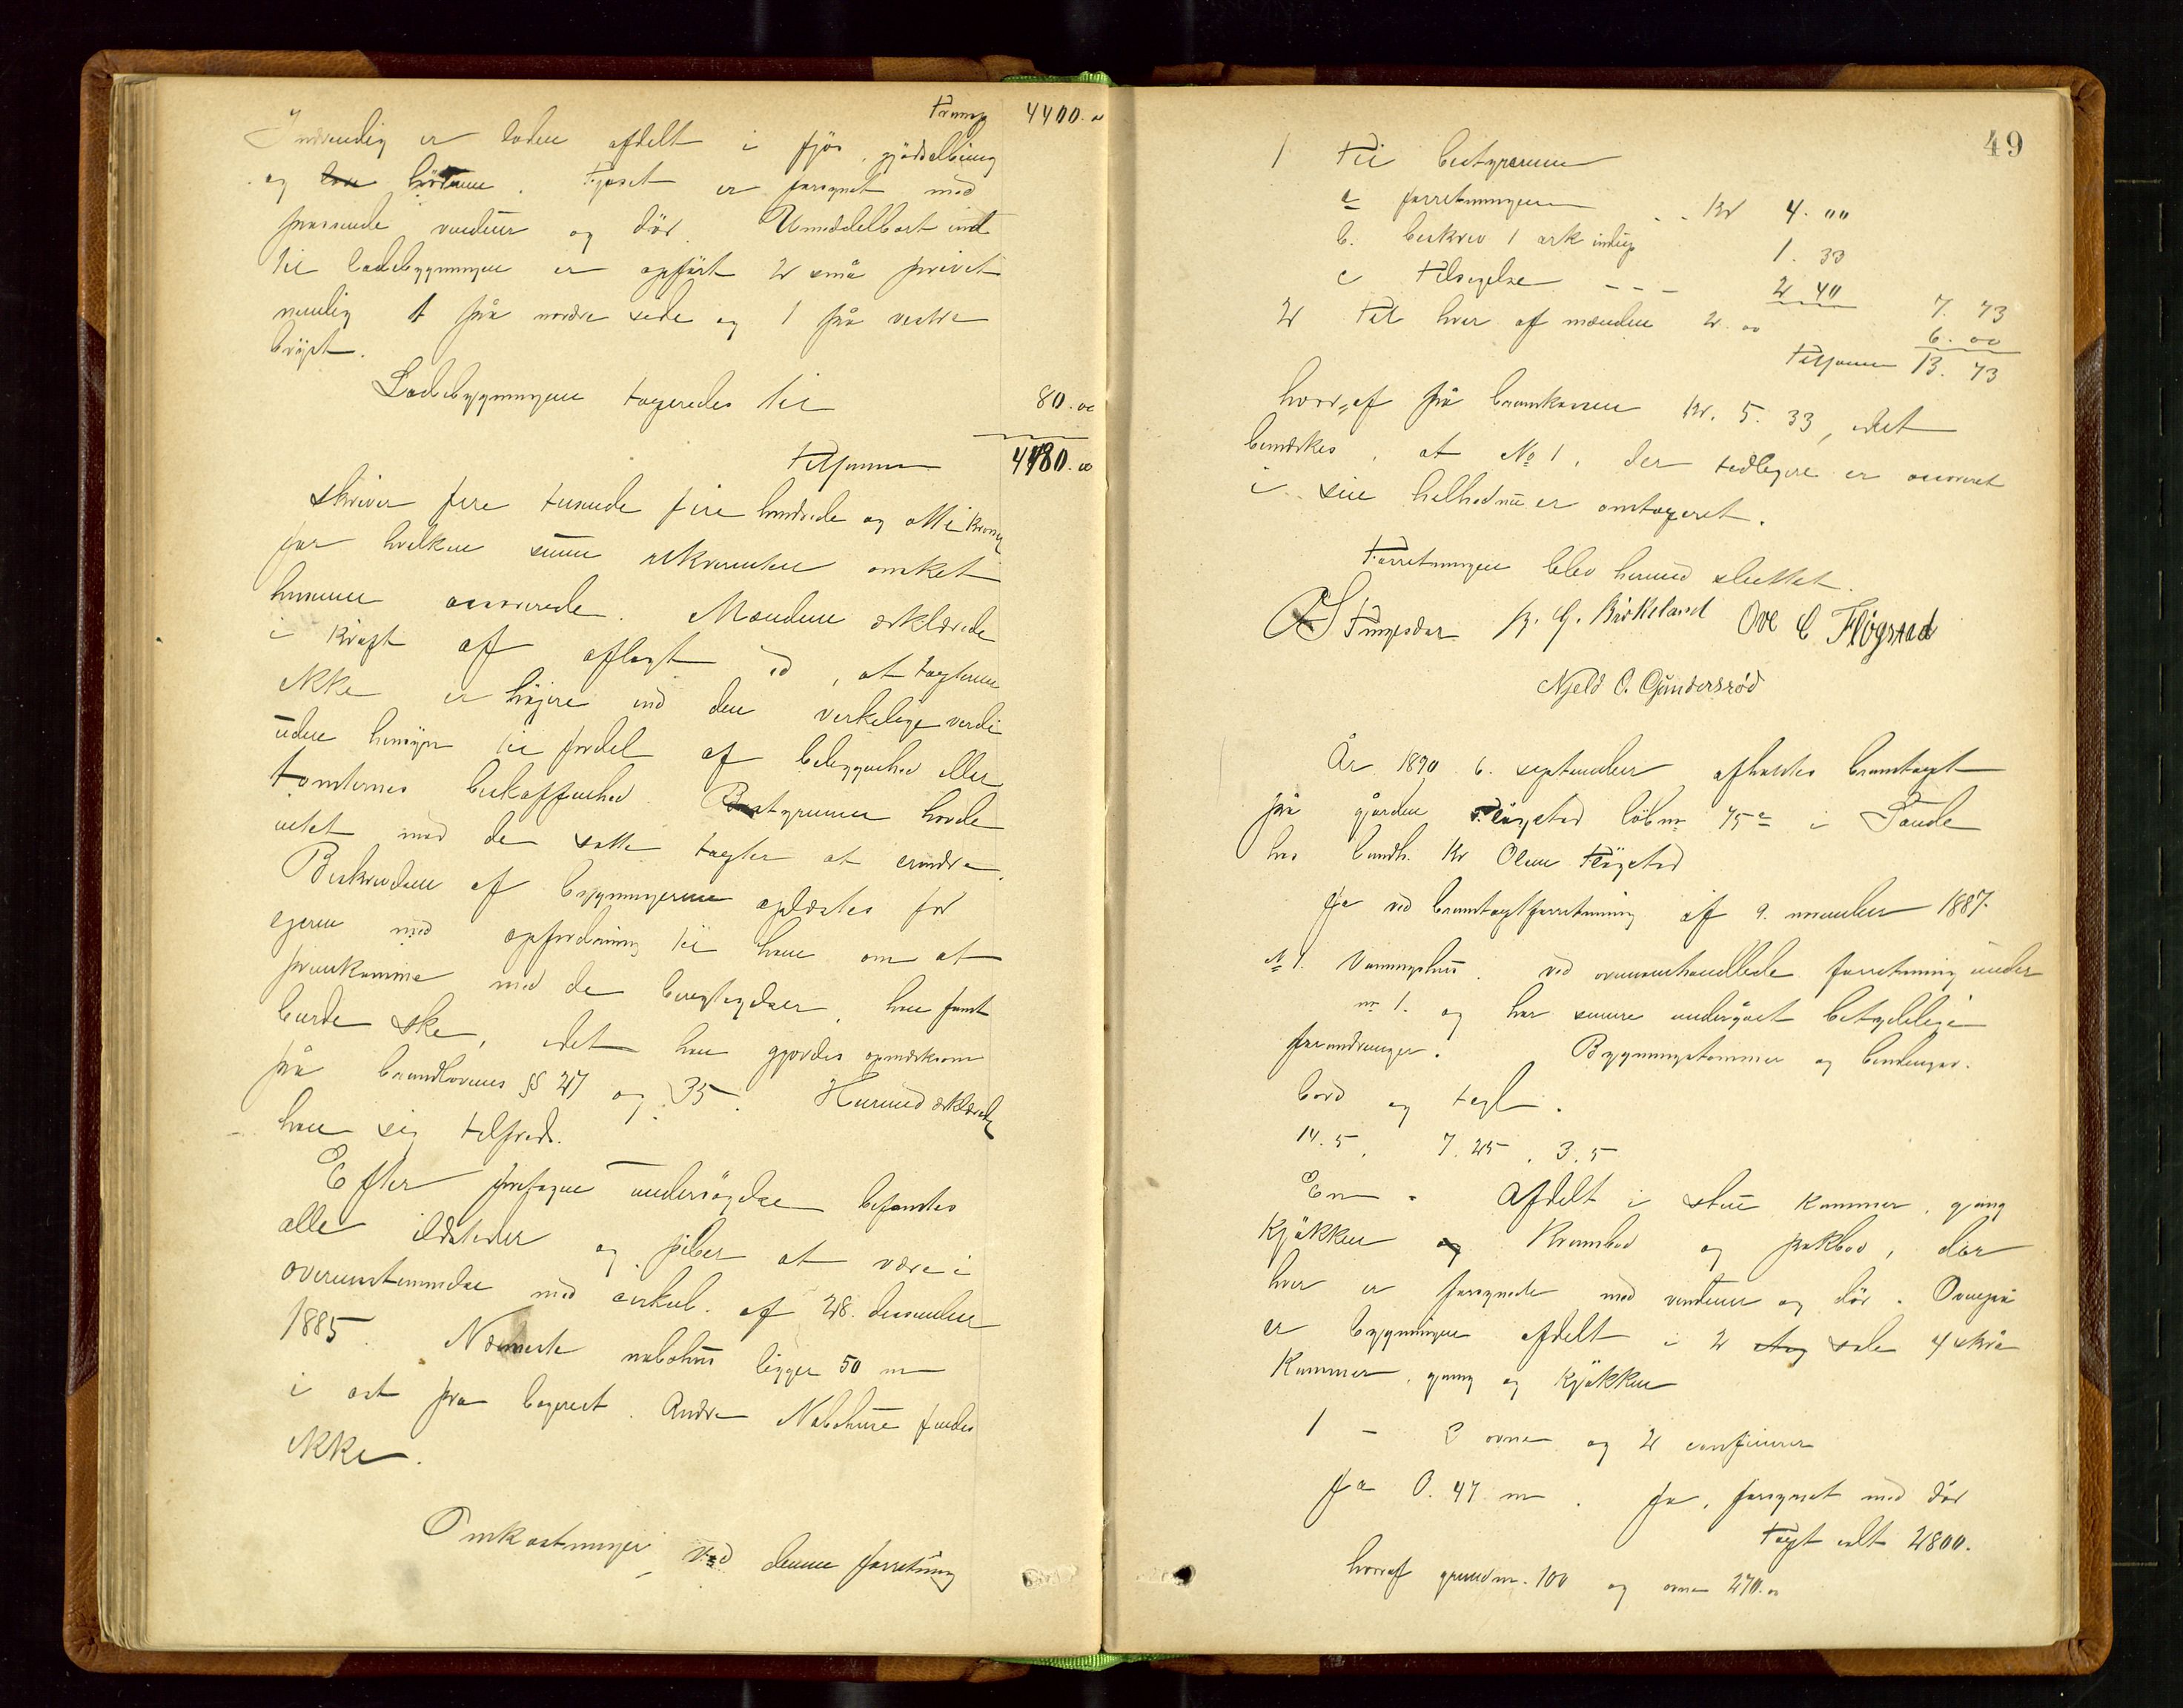 Transp 4400.00
Indvendig er laden afdelt i fjøs, gjødselbing
og hørum. Fjøset er forsynet med
passende vinduer og dør. Umiddelbart ind
til ladebygningen er opført 2 små privet
nemlig 1 på nordre side og 1 på vestre
bryst.
Ladebygningen taxeredes til 80.00
Tilsammen 4480.00
skriver fire tusinde fire hundrede og otti kroner
for hvilken sum rekvirenten ønsket
husene assurerede. Mændene erklærede
i kraft af aflagt ed, at taxterne
ikke er høiere end den virkelige verdi
uden hensyn til fordel af beliggenhed eller
tomternes beskaffenhed. Bestyreren havde
intet mod de satte taxter at erindre.
Beskrivelsen af bygningerne oplæstes for
eieren med opfordring til ham om at
fremkomme med de berigtigelser, han fandt
burde ske, idet han gjordes opmærksom
på brandlovens §§ 27 og 35. Hermed erklærede
han sig tilfreds.
Efter foretagne undersøgelse befandtes
alle ildsteder og piber at være i
overensstemmelse med cirkul. af 28. desember
1885. Nærmeste nabohus ligger 50 m
i øst fra bageriet. Andre Nabohuse findes
ikke.
Omkostninger ved denne forretning
49
1 Til bestyreren
a forretningen - - Kr 4. 00
b. beskrev 1 ark indtp 1. 33
c Tilsigelse - - - 2 40
7. 73
2 Til hver af mændene 2. 00
6. 00
Tilsammen 13. 73
hvor„af på brandkassen Kr. 5. 33, idet
bemærkes, at No 1. der tidligere er assureret
i sin helhed nu er omtaxeret.
Forretningen blev hermed sluttet.
K. G. Birkeland Ove C Fløgstad
Njeld O. Gundersrød
År 1890 6. september afholdtes brandtaxt
på gården Fløgstad løbnr 75a i Sande
hos landh. Kr Olsen Fløgstad
Ja ved brandtaxtforretning af 9. november 1887.
No 1. Vaaningshus. ved ovenomhandlede forretning under
nr 1. og har senere undergået betydelige
forandringer. Bygningstømmer og bindinger.
bord og tegl.
14. 5. 7. 25. 3. 5
En. Afdelt i stue kammer, gang
kjøkken Krambod og pakbod, der
hver er forsynede med vinduer og dør. Ovenpå
er bygningen afdelt i 2 sale 4 skrå
kammer, gang og kjøkken
1 - 2 ovne og 2 comfyrer
Ja 0. 47 m. Ja, forsynet med dør
Taxt ialt 2800.
hvoraf grundm. 100 og ovne 270.00